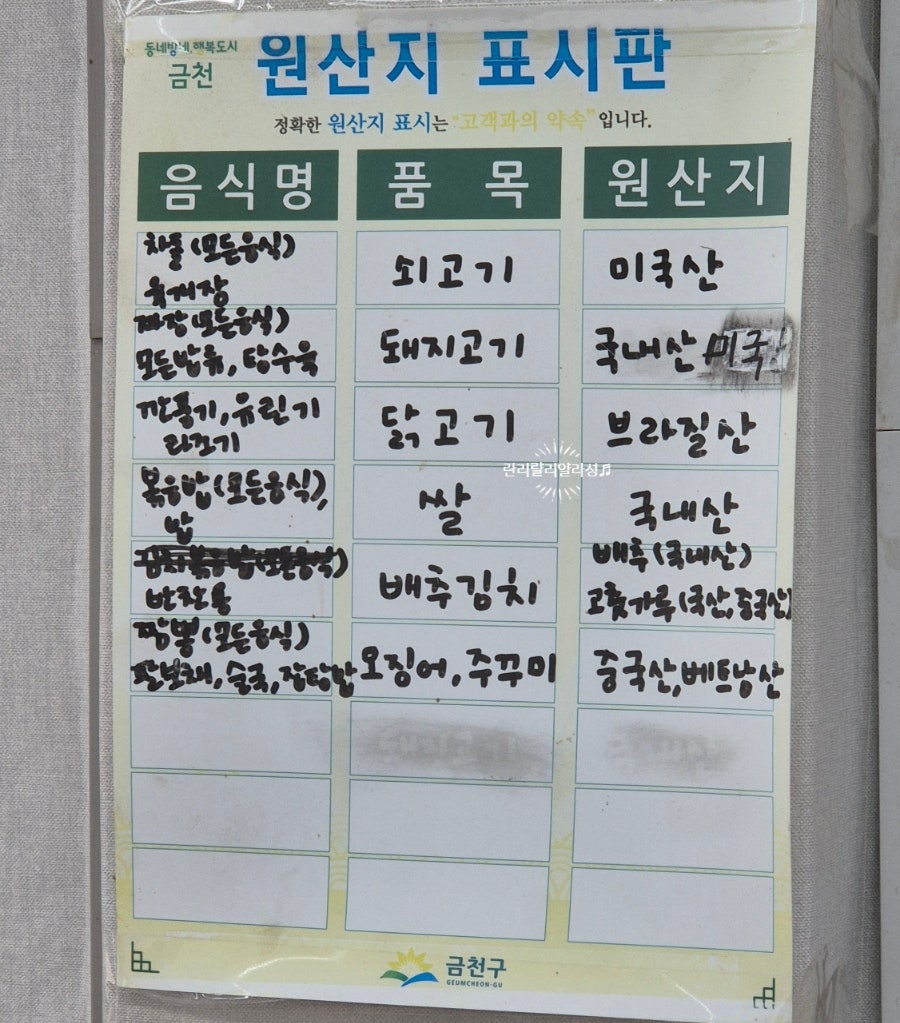 동네방네, 행복도시
금천
원산지 표시판
정확한 원산지 표시는 "고객과의 약속" 입니다.
음식명 품목 원산지
차돌(모든음식)
육개장
쇠고기 미국산
짜장(모든음식)
모든밥류, 탕수육
돼지고기 국내산 미국
깐풍기, 유린기
라조기
닭고기 브라질산
란리랄리알라성♬
볶음밥(모든음식),
밥
쌀 국내산
김치볶음밥(모든음식)
반찬용
배추김치
배추(국내산)
고춧가루(국산,중국산)
짬뽕(모든음식)
팔보채, 술국, 잡탕밥
오징어, 주꾸미 중국산, 베트남산
금천구
GEUMCHEON-GU